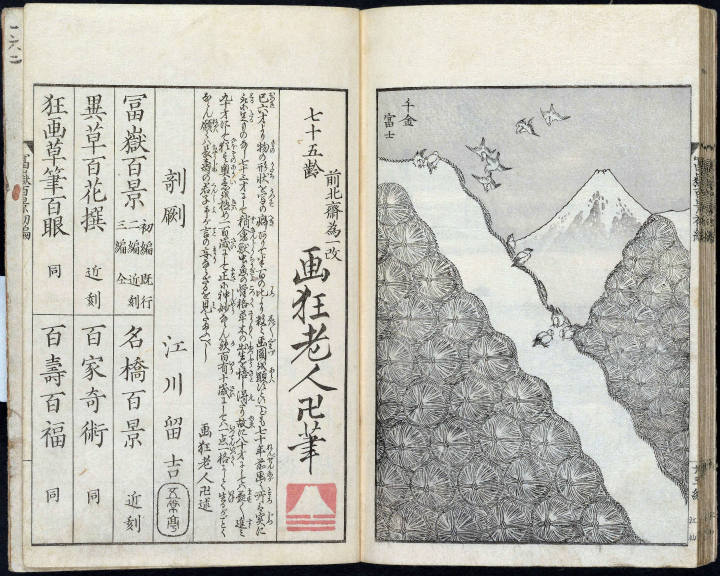 千金
富士
七十五齢
前北斎為一改
画狂老人卍筆
己六才より物の形状を写の癖ありて半百の比より数々画図を顕すといへども七十年前画く所は実に
取に足ものなし七十三才にして稍禽獣虫魚の骨格草木の出生を悟し得たり故に八十才にしては益々進み
九十才にして猶其奥意を極め一百歳にして正に神妙ならん歟百有十歳にしては一点一格にして生るがごとく
ならん願くは長寿の君子予が言の妄ならざるを見たまふべし
画狂老人卍述
剞劂 江川留吉 五常亭
冨嶽百景 初編 既行 二編 近刻 三編 仝
名橋百景 近刻
異草百花撰 近刻
百家奇術 同
狂画草筆百眼 同
百壽百福 同
冨嶽百景初編